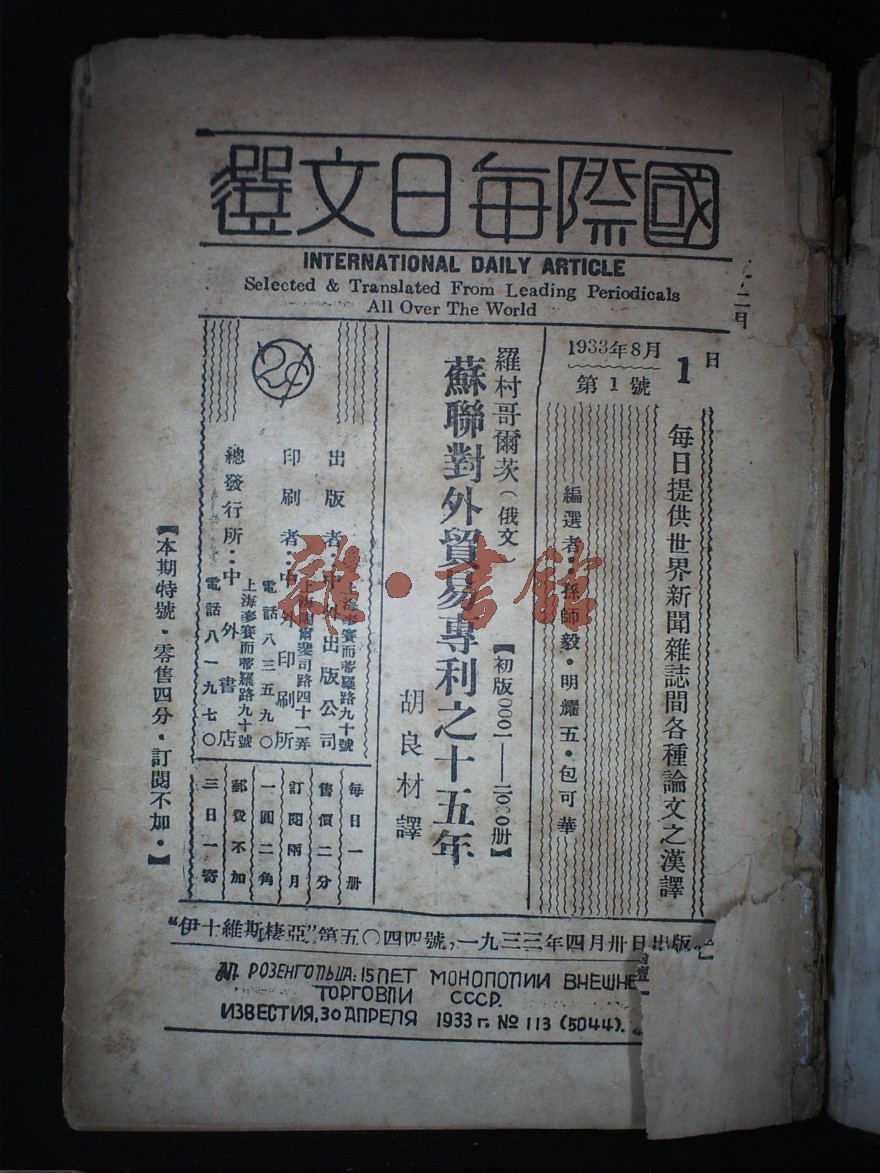 國際每日文選
INTERNATIONAL DAILY ARTICLE
Selected & Translated From Leading Periodicals
All Over The World
1933年8月1日
第1號
每日提供世界新聞雜誌間各種論文之漢譯
編選者：孫師毅・明耀五・包可華
羅村哥爾茨（俄文）
蘇聯對外貿易專利之十五年
胡良材譯
【初版0001——2000册】
2¢
出版者：中外出版公司
上海麥賽而蒂羅路九十號
印刷者：中外印刷所
電話八三五九〇
總發行所：中外書店
上海麥賽而蒂羅路九十號
電話八一九七〇
每日一册
售價二分
訂閱兩月
一圓二角
郵費不加
三日一寄
【本期特號・零售四分・訂閱不加・】
“伊士維斯棲亞”第五〇四四號，一九三三年四月卅日出版
РОЗЕНГОЛЬЦА: 15 ЛЕТ МОНОПОЛИИ ВНЕШНЕ
ТОРГОВЛИ СССР.
ИЗВЕСТИЯ, 30 АПРЕЛЯ 1933 г. № 113 (5044).
雜・書館